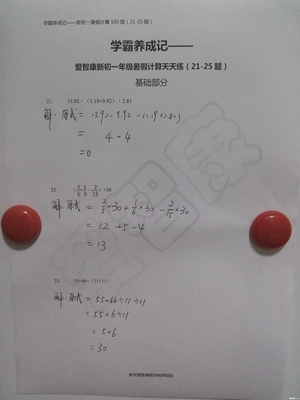 学霸养成记——新初一暑假计算 100 题（21-25 题）
学霸养成记——
爱智康新初一年级暑假计算天天练（21-25 题）
基础部分
21. 13.92-（1.19+9.92）-2.81
解：原式 = 13.92-9.92-(1.19+2.81)
= 4-4
=0
22. （2/5+1/6-2/15）×30
解：原式 = 2/5×30+1/6×30-2/15×30
= 12+5-4
= 13
23. 55×66÷（11×11）
解：原式 = 55×66÷11÷11
= 55×6÷11
= 5×6
= 30